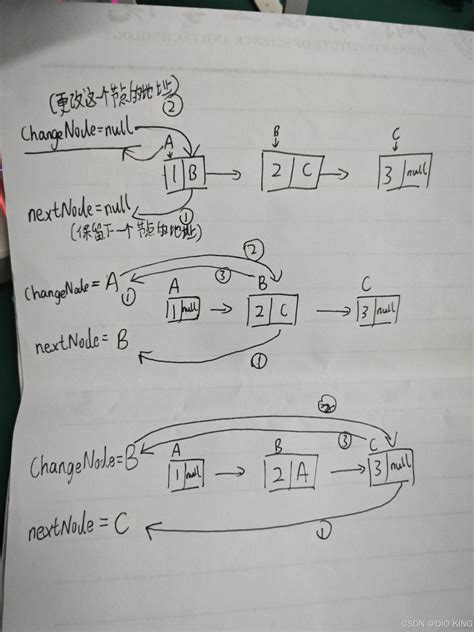 (更改这个节点的地址)
②
changeNode=null
A
1 B
B
2 C
C
3 null
nextNode=null
①
(保留下一个节点的地址)
②
③
changeNode=A
①
A
1 null
B
2 C
C
3 null
nextNode=B
①
②
③
changeNode=B
A
1 null
B
2 A
C
3 null
nextNode=C
①
CSDN @DIO KING